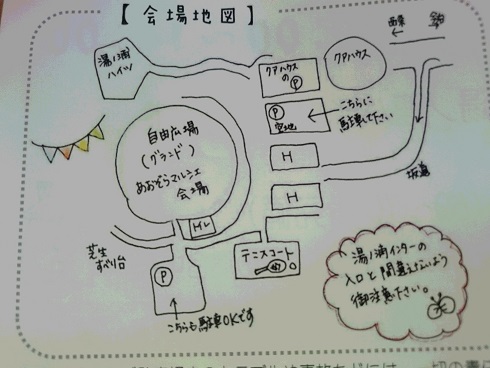 【会場地図】
湯ノ浦
ハイツ
クアハウス
のⓅ
クアハウス
Ⓟ
空地
こちらに
駐車下さい
自由広場
(グランド)
あおぞらマルシェ
会場
H
H
坂道
芝生
すべり台
テニスコート
Ⓟ
こちらも駐車OKです
湯ノ浦インターの
入口と間違えないよう
御注意下さい。